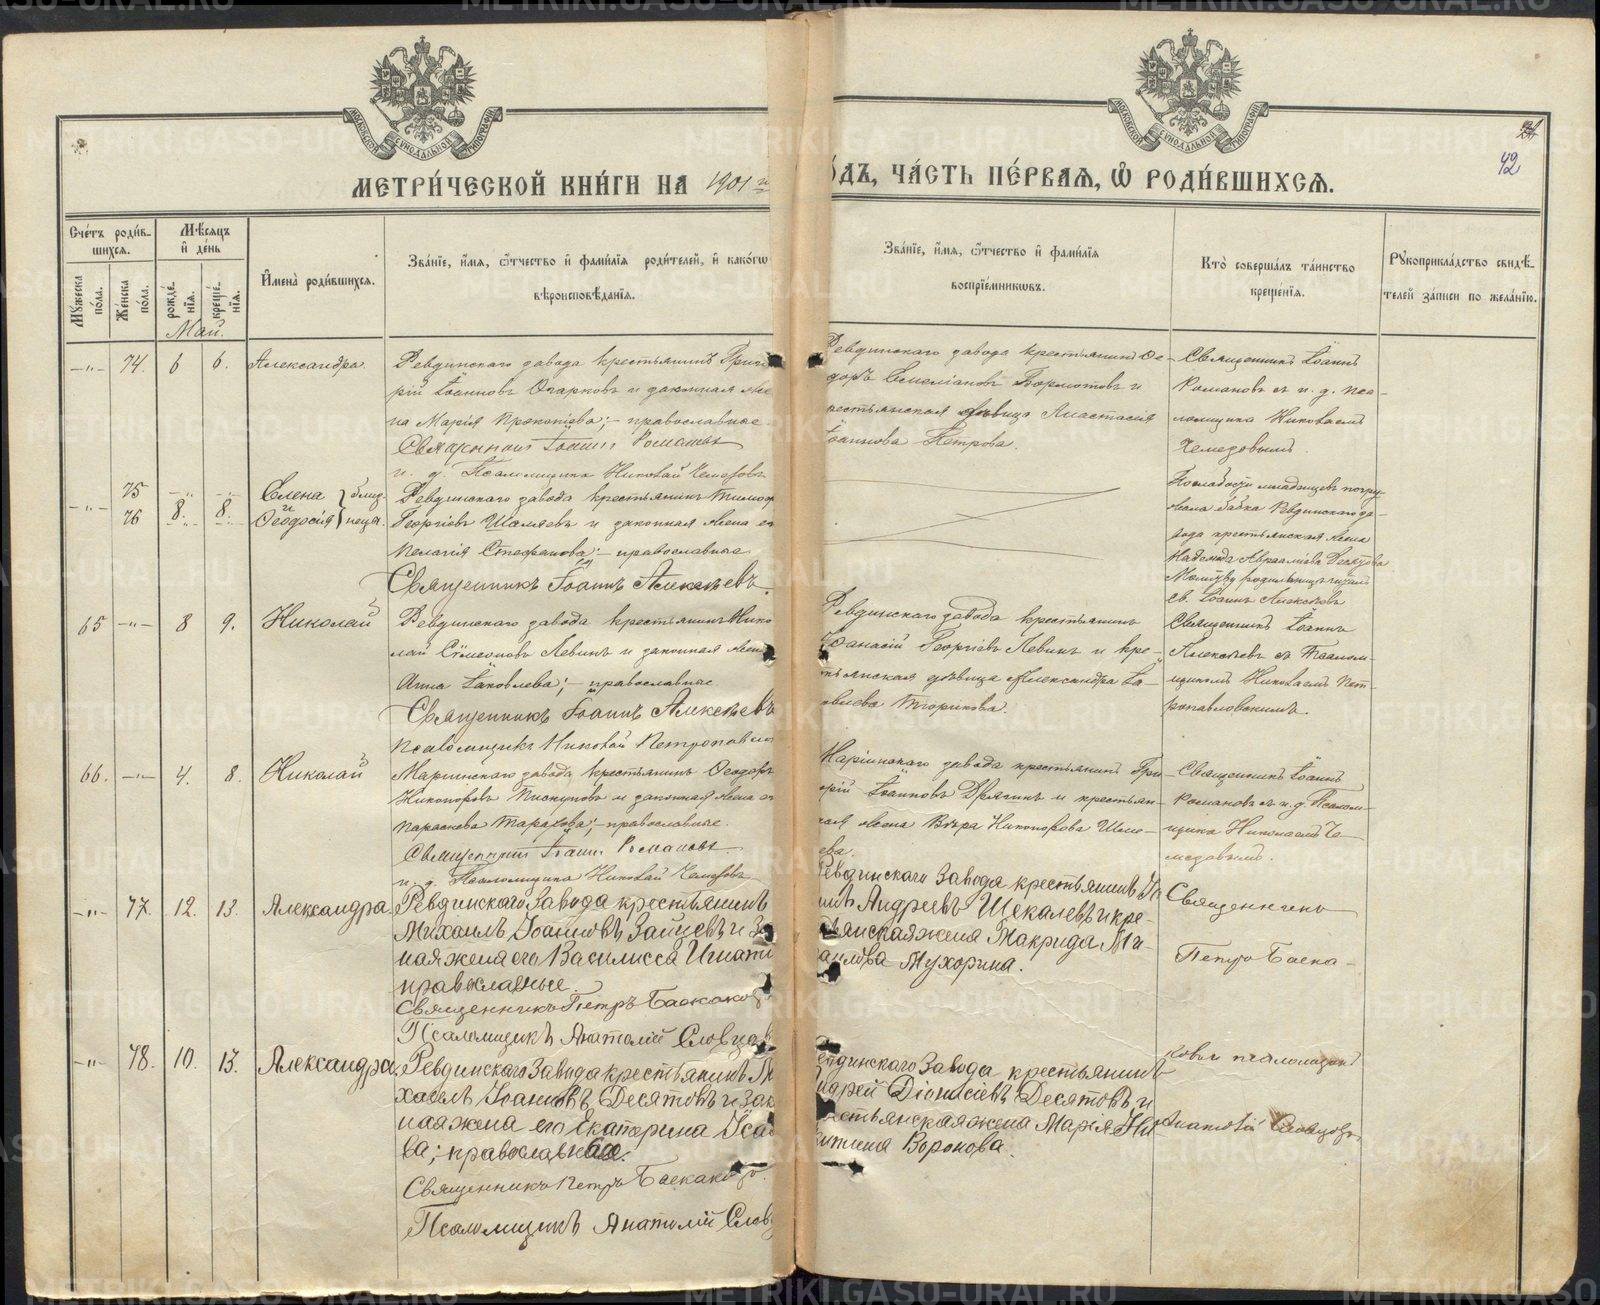 МЕТРИ́ЧЕСКОЙ КНИ́ГИ НА 1901 г
ОДЪ, ЧА́СТЬ ПЕ́РВАЯ, Ѡ РОДИ́ВШИХСЯ.
42
Сче́тъ роди́в-
шихся.
Мѣ́сяцъ
и҆ де́нь
Мꙋ́жеска
по́ла.
Же́нска
по́ла.
рожде́-
нїя.
креще́-
нїя.
И҆мена̀ роди́вшихся.
Зва́нїе, и҆́мя, ѻ҆́тчество и҆ фами́лїя роди́телей, и҆ како́гѡ
вѣроисповѣ́данїя.
Зва́нїе, и҆́мя, ѻ҆́тчество и҆ фами́лїя
воспрїе́мникѡвъ.
Кто̀ соверша́лъ та́инство
креще́нїя.
Рꙋкоприкла́дство свидѣ́-
телей за́писи по жела́нїю.
Май.
-"- 74. 6 6. Александра
Ревдинскаго завода крестьянинъ Григо
рій Іоанновъ Опарковъ и законная же
на Марія Прокопіева; - православные
Священникъ Іоаннъ Романовъ
и. д. Псаломщика Николай Чемезовъ
Ревдинскаго завода крестьянинъ Ѳе-
доръ Емеліановъ Бормотовъ и
крестьянская дѣвица Анастасія
Іоаннова Петрова.
Священникъ Іоаннъ
Романовъ съ и. д. пса-
ломщика Николаемъ
Чемезовымъ.
-"- 75 76 8. 8. Елена и Ѳеодосія близнеца.
Ревдинскаго завода крестьянинъ Тимоѳ
Георгіевъ Шаляевъ и законная жена его
Пелагія Стефанова; - православные
Священникъ Іоаннъ Алексѣевъ.
По слабости младенцевъ погру-
жала бабка Ревдинскаго за-
вода крестьянская жена
Надежда Авраамова
Молитву родильницѣ читалъ
св. Іоаннъ Алексѣевъ
65 -"- 8 9. Николай
Ревдинскаго завода крестьянинъ Нико
лай Сѵмеоновъ Левинъ и законная жена
Анна Іаковлева; - православные
Священникъ Іоаннъ Алексѣевъ
Псаломщикъ Николай Петропавло
Ревдинскаго завода крестьянинъ
Аѳанасій Георгіевъ Левинъ и кре-
стьянская дѣвица Александра Іа-
ковлева
Священникъ Іоаннъ
Алексѣевъ съ Псалом-
щикомъ Николаемъ Пет-
ропавловскимъ.
66. -"- 4. 8. Николай
Маріинскаго завода крестьянинъ Ѳеодоръ
Никифоровъ Пискуновъ и законная жена его
Параскева Тарасова; - православные.
Священникъ Іоаннъ Романовъ
и. д. Псаломщика Николай Чемезовъ
Маріинскаго завода крестьянинъ Гри
горій Іоанновъ Дрягинъ и крестьян-
ская жена Вѣра Никифорова
ева.
Священникъ Іоаннъ
Романовъ съ и. д. Псалом-
щика Николаемъ Че-
мезовымъ.
-"- 77. 12. 13. Александра
Ревдинскаго Завода крестьянинъ
Михаилъ Іоанновъ Зайцевъ и За
ная жена его Василисса Игнати
православные.
Священникъ Петръ Баскаков
Псаломщикъ Анатолій Словцов
Ревдинскаго Завода крестьянинъ
Андреевъ Щекалевъ и кре-
стьянская жена Макрида Ми-
хаилова Мухорина.
Священникъ
Петръ Баска-
-"- 78. 10. 13. Александра
Ревдинскаго Завода крестьянинъ Ми
хаилъ Іоанновъ Десятовъ и зак
ная жена его Екатерина Іса
ва; православные.
Священникъ Петръ Баскаковъ.
Псаломщикъ Анатолій Словц
Ревдинскаго Завода крестьянинъ
Андрей Діонисіевъ Десятовъ и
крестьянская жена Марія Ни-
китина Воронова.
ковъ псаломщикъ
Анатолій Словцовъ
METRIKI.GASO-URAL.RU